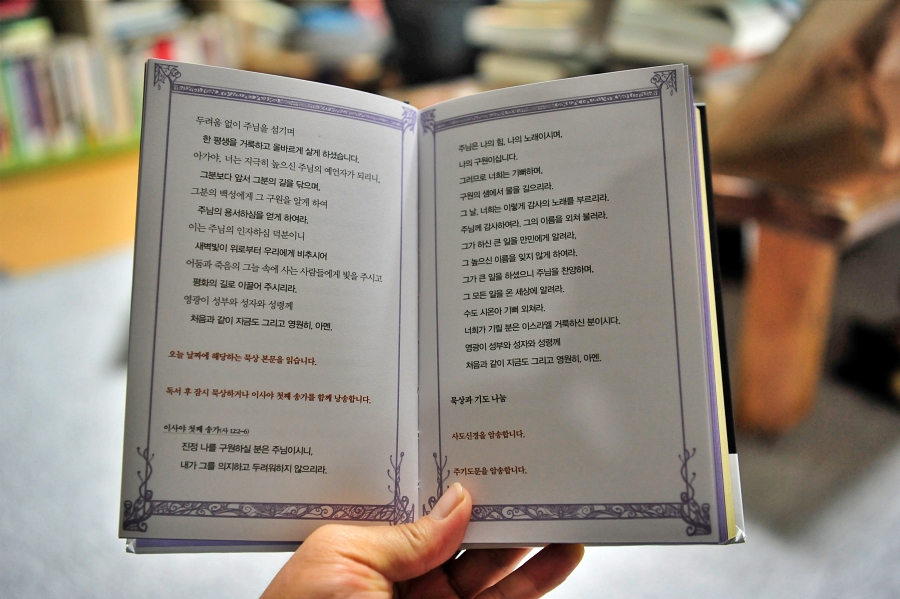 두려움 없이 주님을 섬기며
한 평생을 거룩하고 올바르게 살게 하셨습니다.
아가야, 너는 지극히 높으신 주님의 예언자가 되리니,
그분보다 앞서 그분의 길을 닦으며,
그분의 백성에게 그 구원을 알게 하여
주님의 용서하심을 얻게 하여라.
이는 주님의 인자하심 덕분이니
새벽빛이 위로부터 우리에게 비추시어
어둠과 죽음의 그늘 속에 사는 사람들에게 빛을 주시고
평화의 길로 이끌어 주시리라.
영광이 성부와 성자와 성령께
처음과 같이 지금도 그리고 영원히, 아멘.
오늘 날짜에 해당하는 묵상 본문을 읽습니다.
독서 후 잠시 묵상하거나 이사야 첫째 송가를 함께 낭송합니다.
이사야 첫째 송가(사 12:2-6)
진정 나를 구원하실 분은 주님이시니,
내가 그를 의지하고 두려워하지 않으리라.
주님은 나의 힘, 나의 노래이시며,
나의 구원이십니다.
그러므로 너희는 기뻐하며,
구원의 샘에서 물을 길으리라.
그 날, 너희는 이렇게 감사의 노래를 부르리라.
주님께 감사하여라. 그의 이름을 외쳐 불러라.
그가 하신 큰 일을 만민에게 알려라,
그 높으신 이름을 잊지 않게 하여라.
그가 큰 일을 하셨으니 주님을 찬양하며,
그 모든 일을 온 세상에 알려라.
수도 시온아 기뻐 외쳐라.
너희가 기릴 분은 이스라엘 거룩하신 분이시다.
영광이 성부와 성자와 성령께
처음과 같이 지금도 그리고 영원히, 아멘.
묵상과 기도 나눔
사도신경을 암송합니다.
주기도문을 암송합니다.